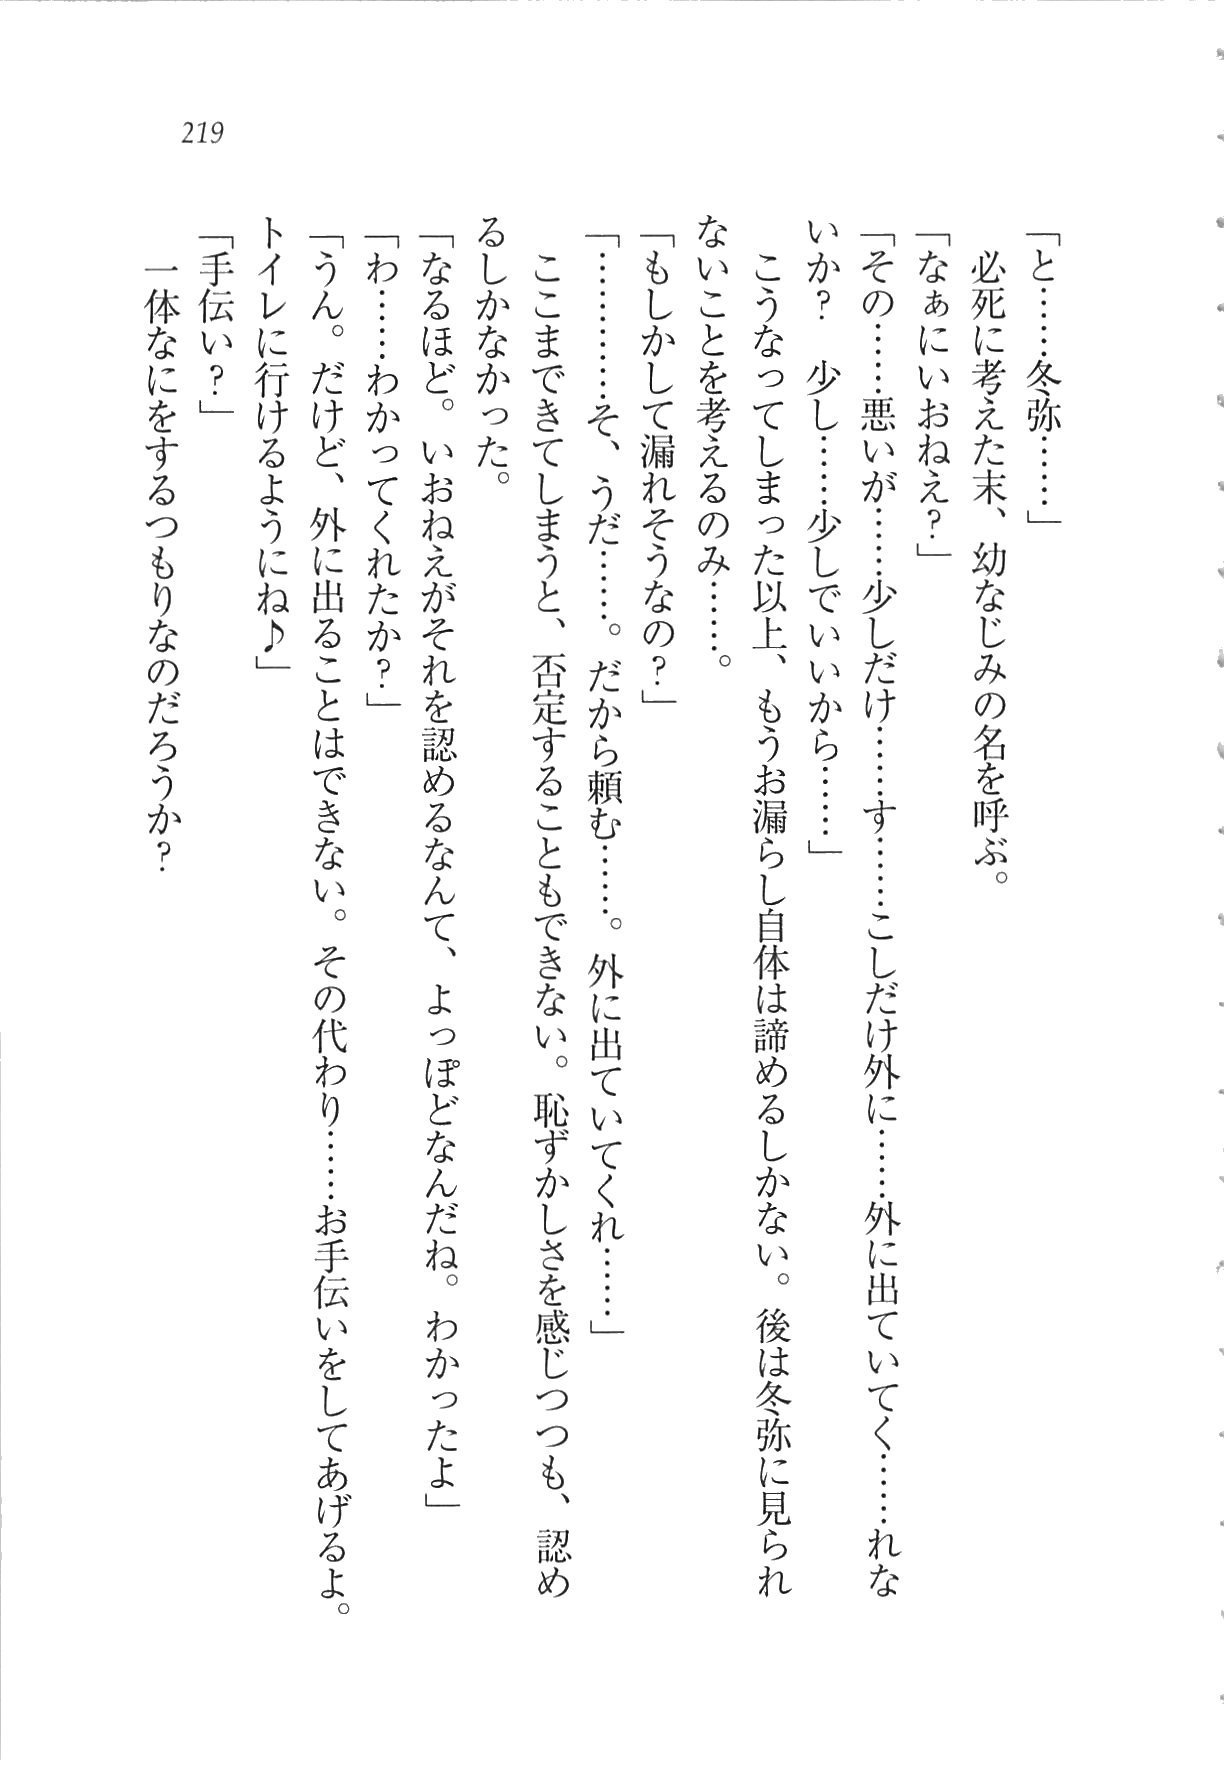 219
「と……冬弥……」
　必死に考えた末、幼なじみの名を呼ぶ。
「なぁにいおねえ？」
「その……悪いが……少しだけ……す……こしだけ外に……外に出ていてく……れな
いか？　少し……少しでいいから……」
　こうなってしまった以上、もうお漏らし自体は諦めるしかない。後は冬弥に見られ
ないことを考えるのみ……。
「もしかして漏れそうなの？」
「…………そ、うだ……。だから頼む……。外に出ていてくれ……」
　ここまできてしまうと、否定することもできない。恥ずかしさを感じつつも、認め
るしかなかった。
「なるほど。いおねえがそれを認めるなんて、よっぽどなんだね。わかったよ」
「わ……わかってくれたか？」
「うん。だけど、外に出ることはできない。その代わり……お手伝いをしてあげるよ。
トイレに行けるようにね♪」
「手伝い？」
　一体なにをするつもりなのだろうか？